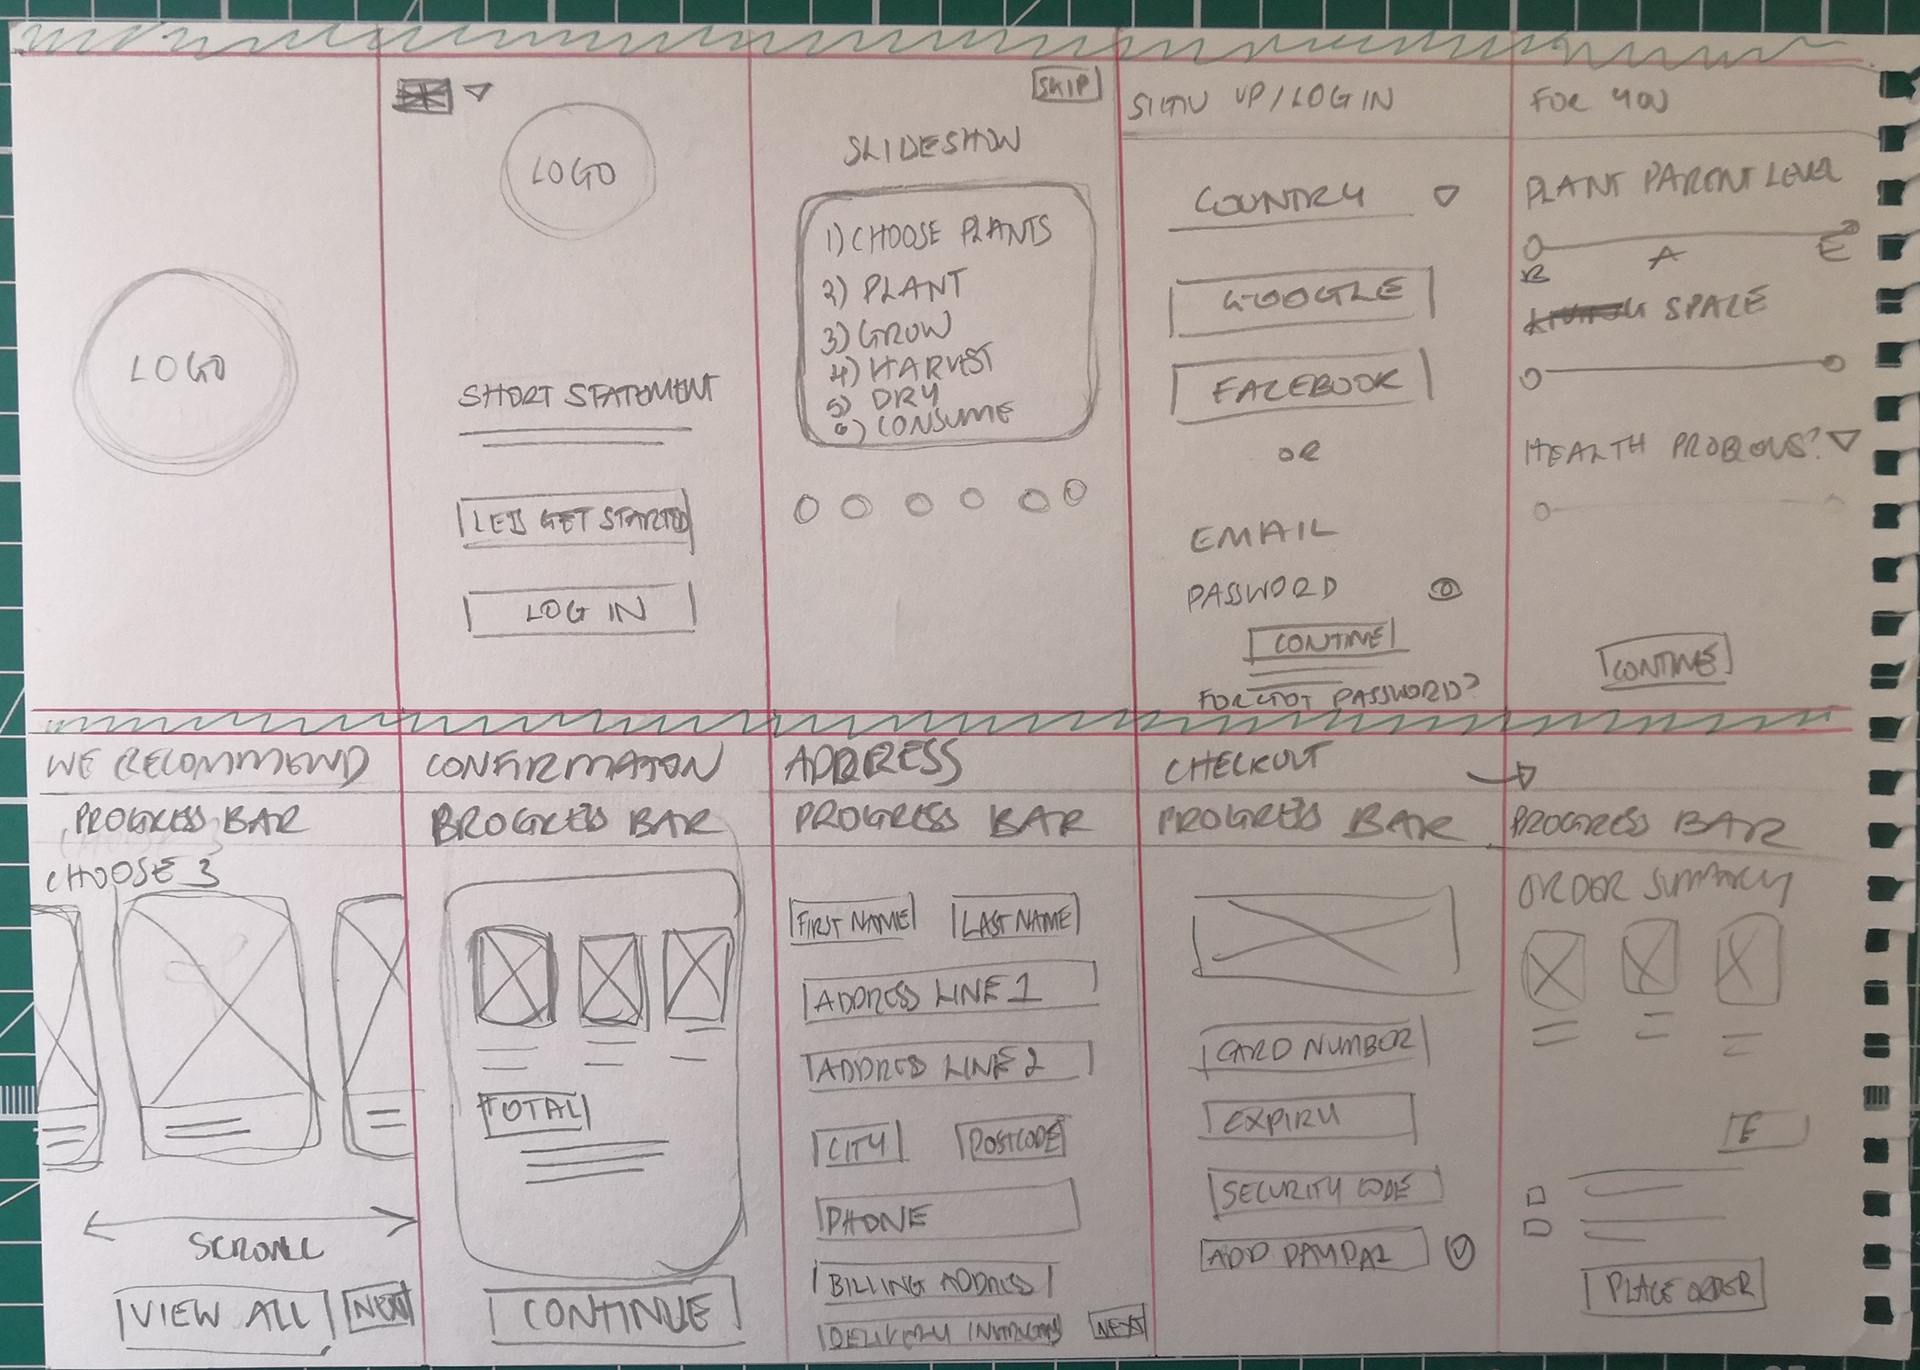 LOGO
LOGO
SHORT STATEMENT
LETS GET STARTED
LOG IN
SKIP
SLIDESHOW
1) CHOOSE PLANTS
2) PLANT
3) GROW
4) HARVEST
5) DRY
6) CONSUME
SIGN UP/LOG IN
COUNTRY
GOOGLE
FACEBOOK
OR
EMAIL
PASSWORD
CONTINE
FORGOT PASSWORD?
FOR YOU
PLANT PARENT LEVEL
B A E
SPACE
HEALTH PROBLOMS?
CONTINE
WE RECOMMEND
PROGRESS BAR
CHOOSE 3
SCROLL
VIEW ALL NEXT
CONFIRMATON
PROGRESS BAR
TOTAL
CONTINUE
ADDRESS
PROGRESS BAR
FIRST NAME LAST NAME
ADDRESS LINE 1
ADDRESS LINE 2
CITY POSTCODE
PHONE
BILLING ADDRESS
DELIVERY NEXT
CHECKOUT
PROGRESS BAR
CARD NUMBER
EXPIRY
SECURITY CODE
ADD PAYPAL
PROGRESS BAR
ORDER SUMMARY
E
PLACE ORDER